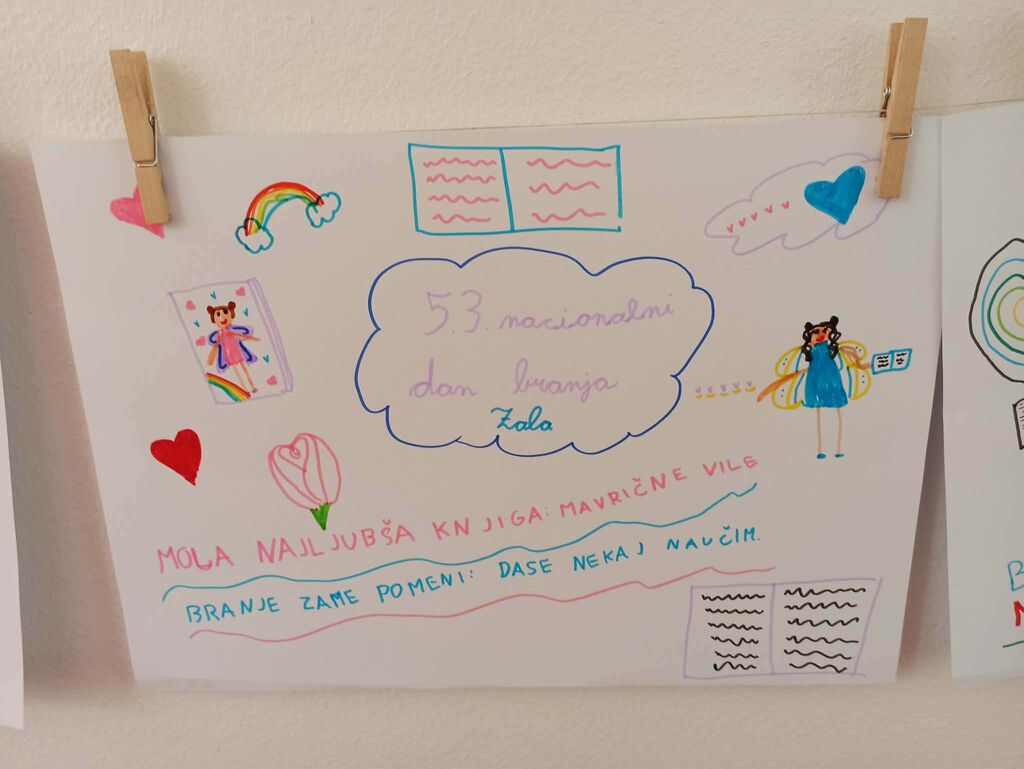 5.3. nacionalni
dan branja
Zala
MOLA NAJLJUBŠA KNJIGA: MAVRIČNE VILE
BRANJE ZAME POMENI: DASE NEKAJ NAUČIM.